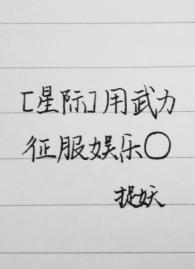 [星际]用武力
征服娱乐○
捉妖